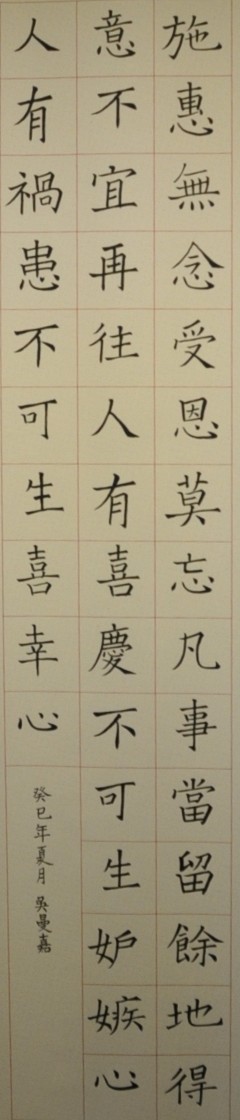 施惠無念受恩莫忘凡事當留餘地得
意不宜再往人有喜慶不可生妒嫉心
人有禍患不可生喜幸心
癸巳年夏月 吳曼嘉